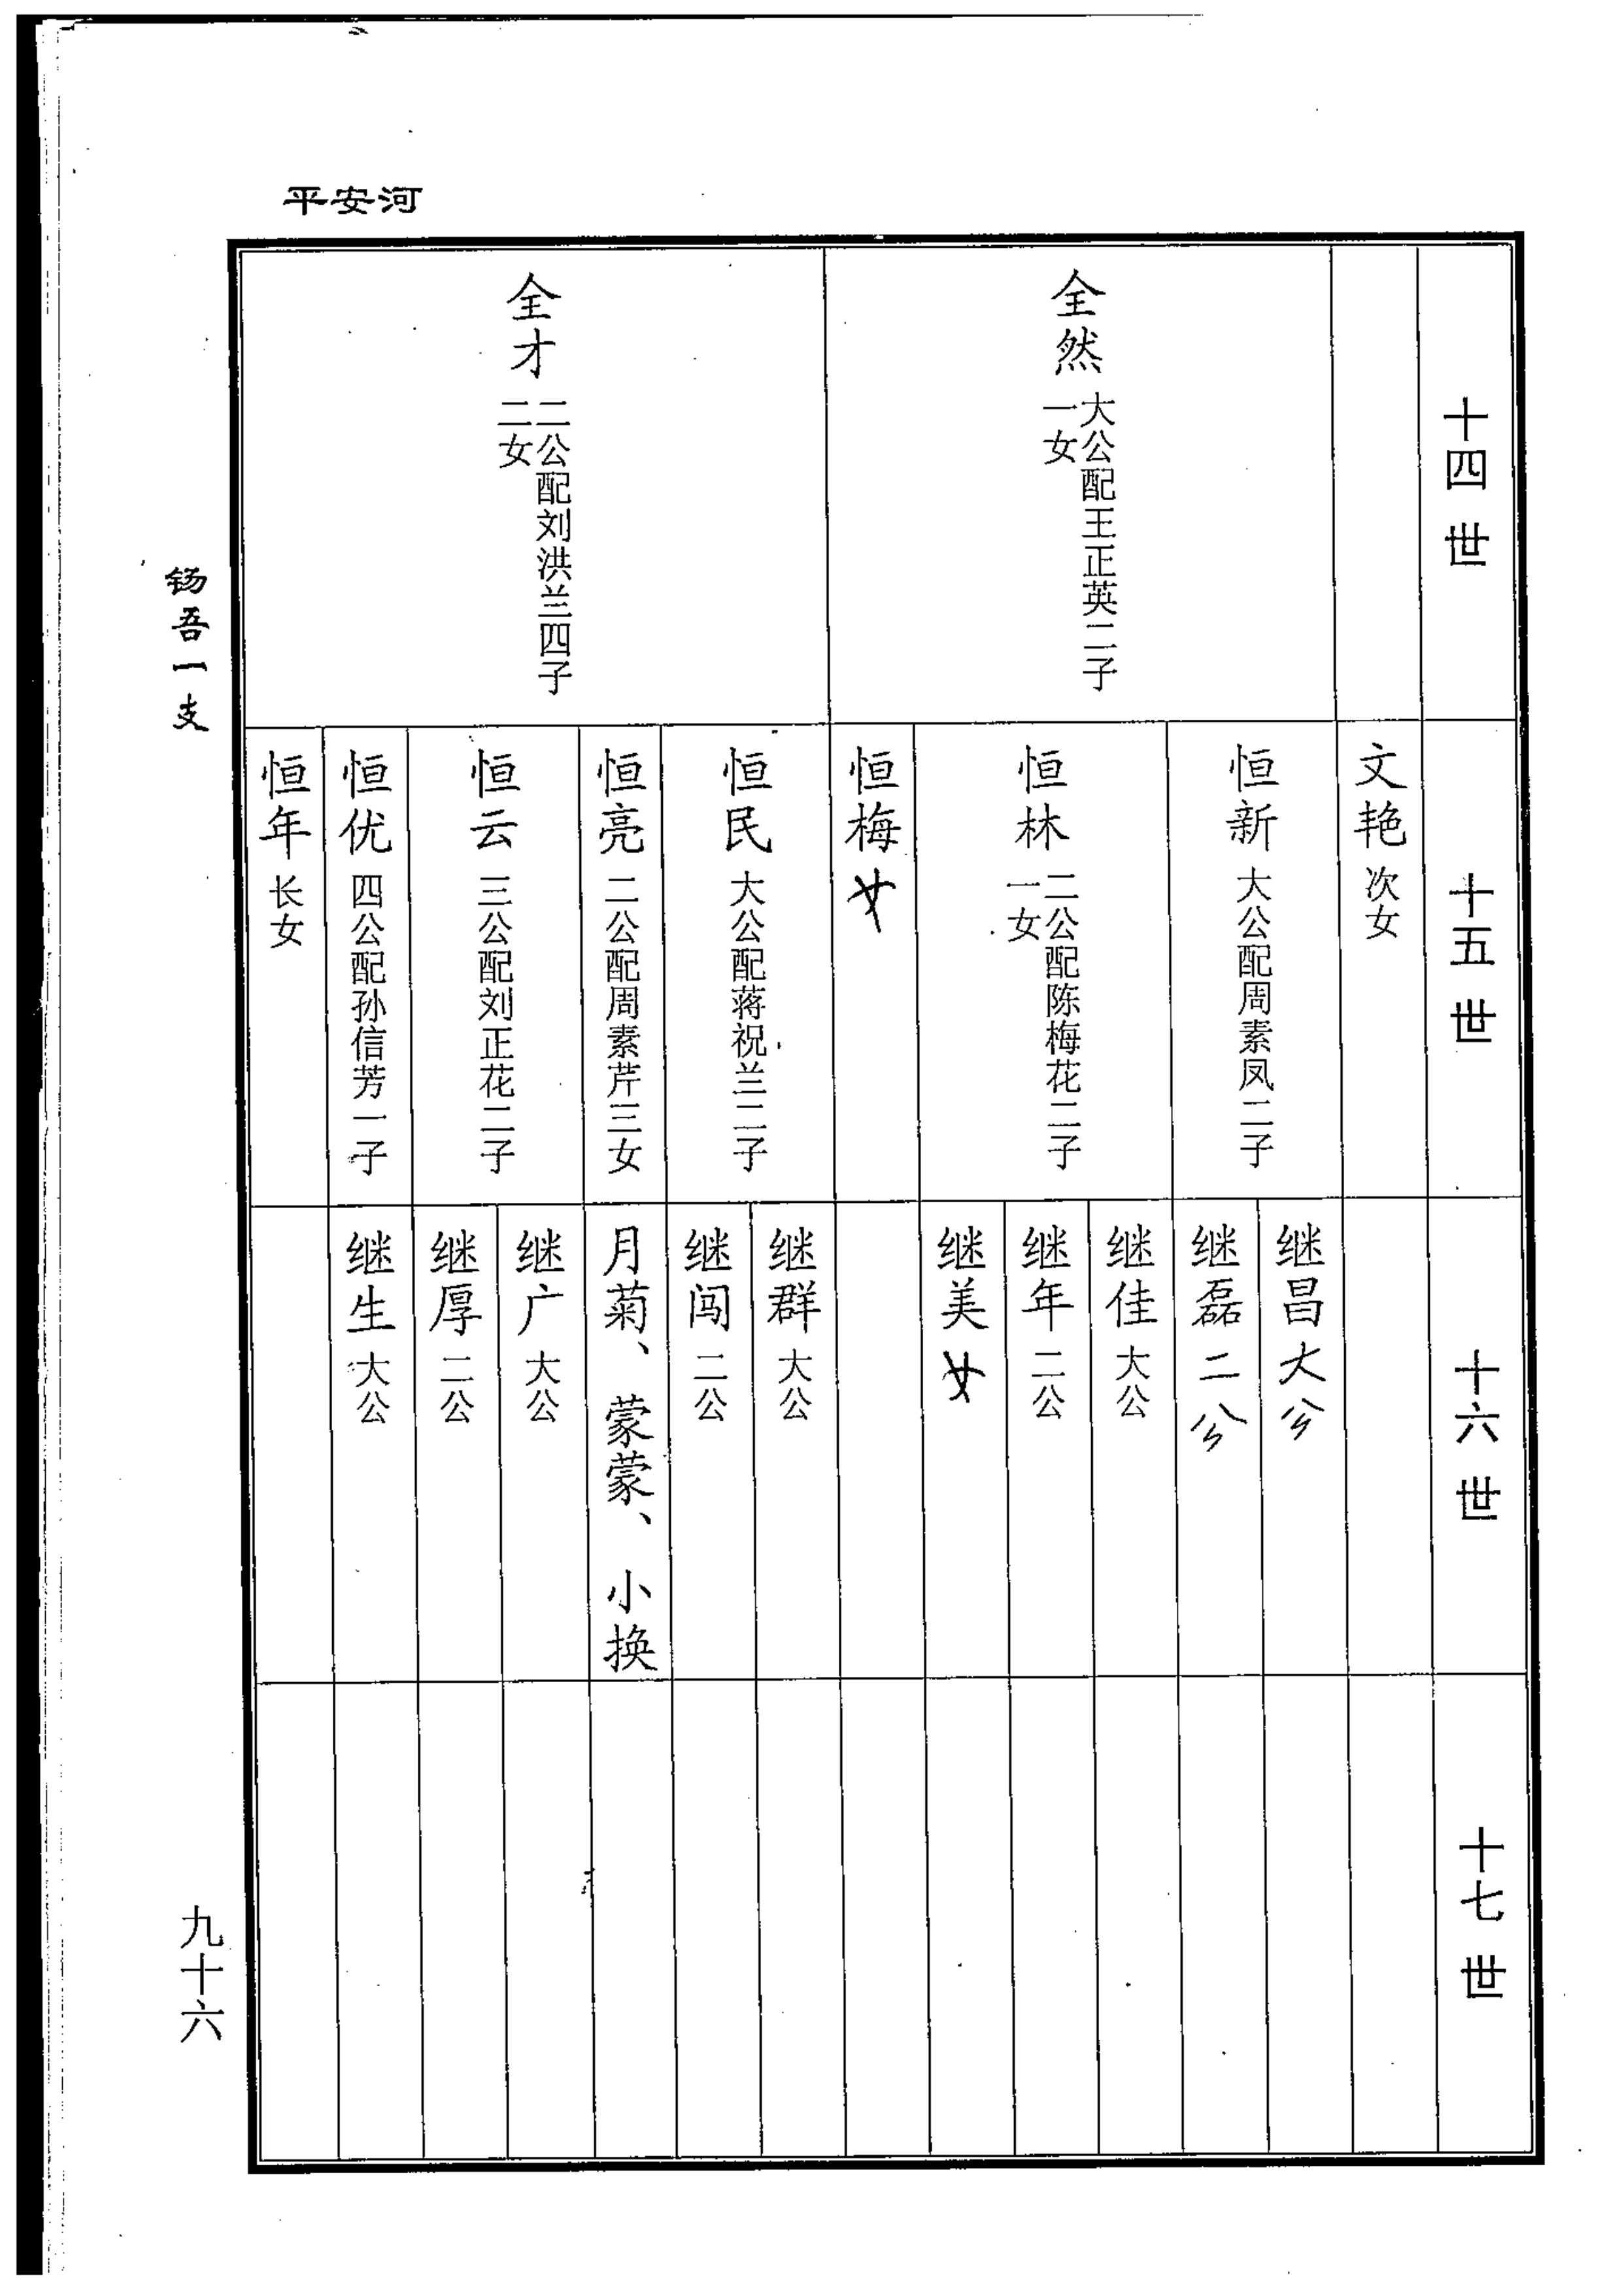 平安河
十四世
全然 大公配王正英二子
一女
全才 二公配刘洪兰四子
二女
十五世
文艳 次女
恒新 大公配周素凤二子
恒林 二公配陈梅花二子
一女
恒梅 女
恒民 大公配蒋祝兰二子
恒亮 二公配周素芹三女
恒云 三公配刘正花二子
恒优 四公配孙信芳一子
恒年 长女
十六世
继昌 大公
继磊 二公
继佳 大公
继年 二公
继美 女
继群 大公
继闯 二公
月菊、蒙蒙、小换
继广 大公
继厚 二公
继生 大公
十七世
吾一支
九十六